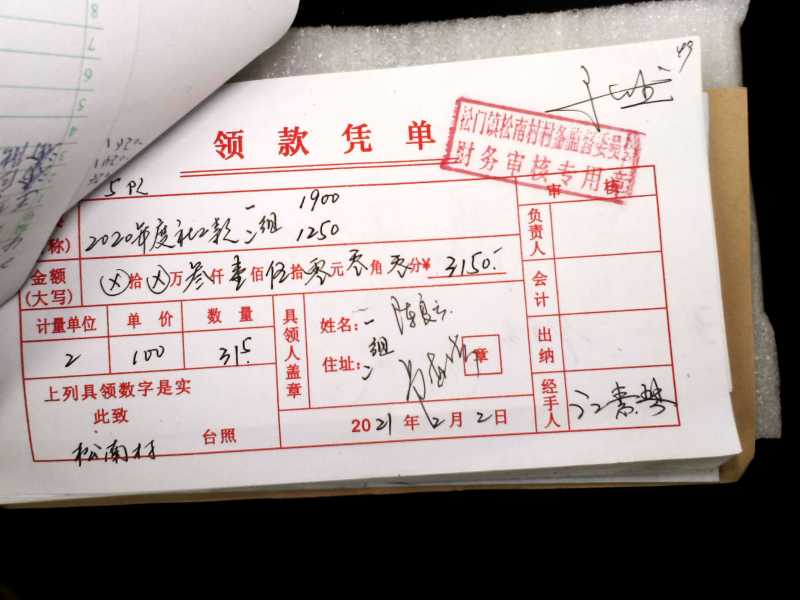 49
松门镇松南村村务监督委员会
财务审核专用章
领款凭单
审核
一 1900
2020年度社工款 二组 1250
称)
金额
(大写)
ⓧ拾ⓧ万叁仟壹佰伍拾零元零角零分¥ 3150.-
计量单位 单价 数量
2 100 31.5
上列具领数字是实
此致
松南村 台照
具领人盖章
姓名:一
住址:二组
章
2021年2月2日
负责人
会计
出纳
经手人